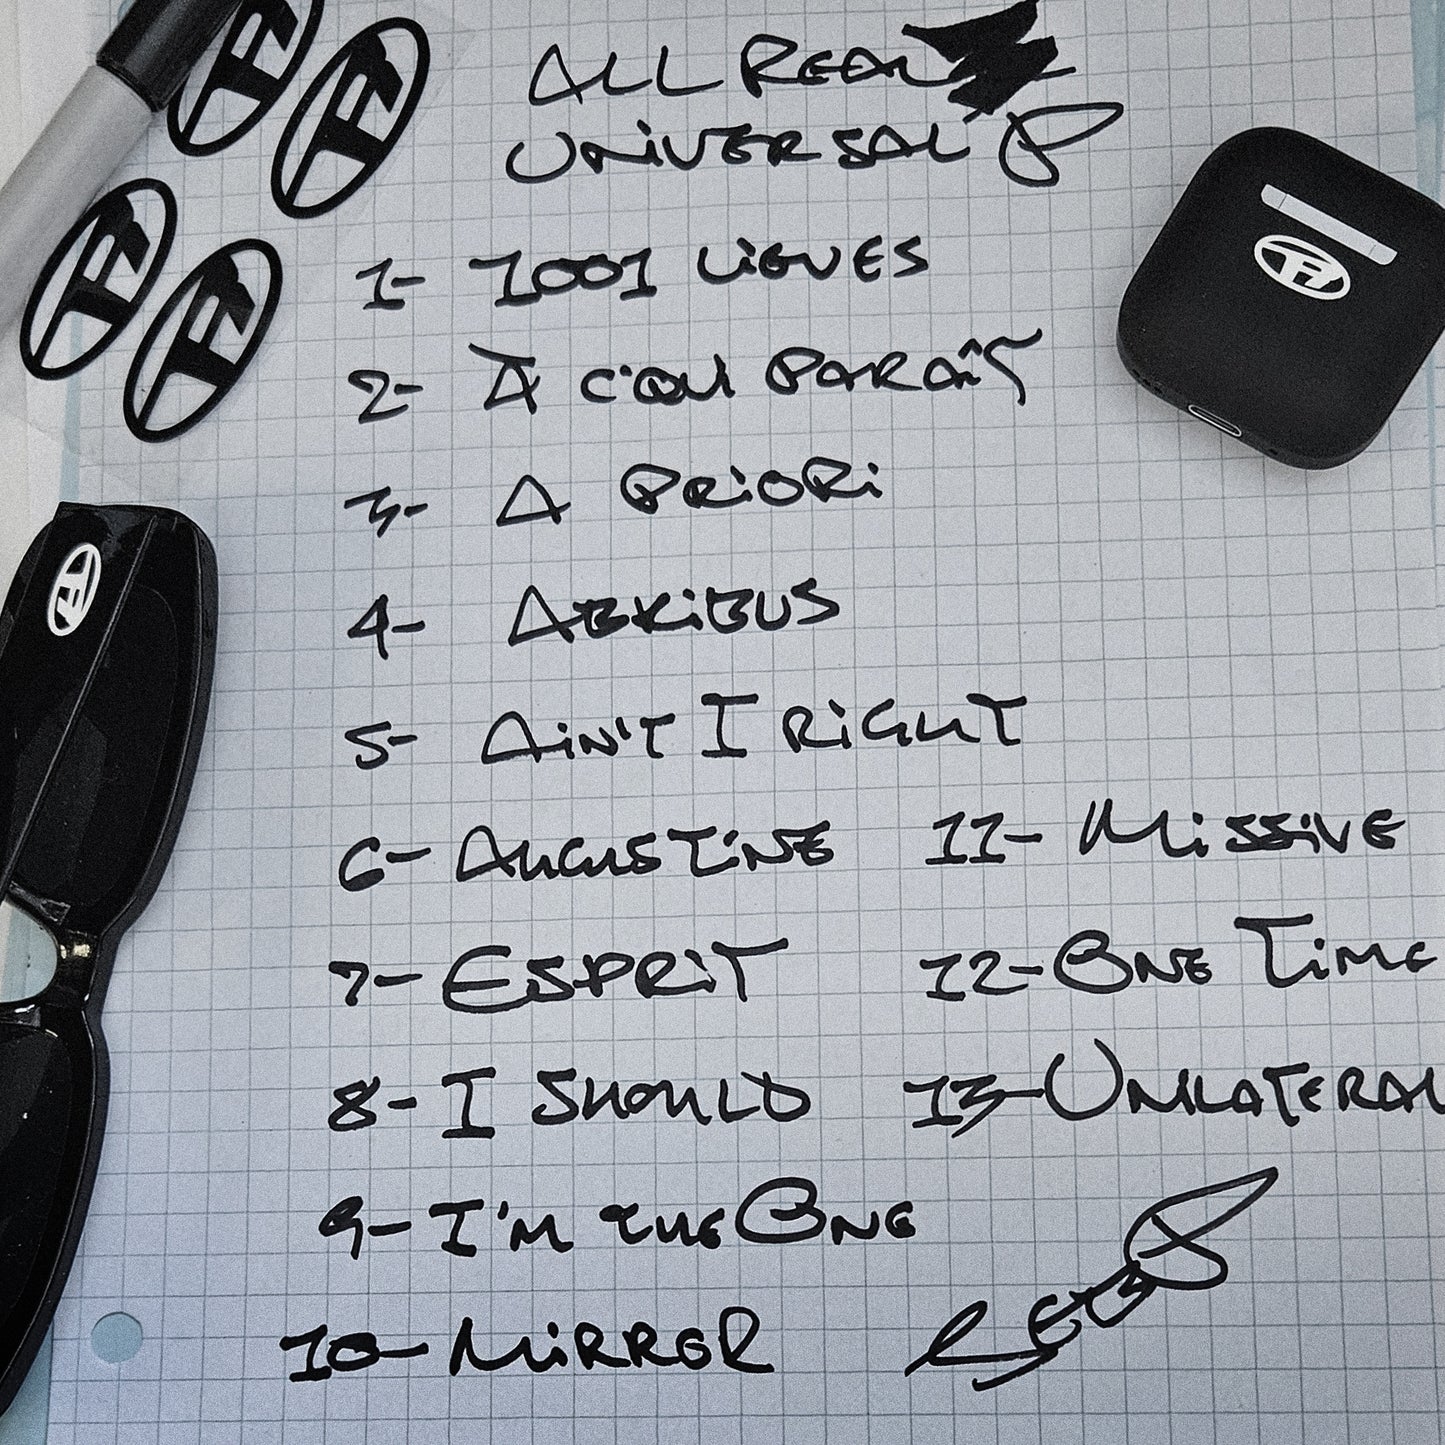 ALL REAL
UNIVERSAL
1- 1001 LIGUES
2- À C'QUI PARAÎT
3- A PRIORI
4- ABRIBUS
5- AIN'T I RIGHT
6- AUGUSTINE
7- ESPRIT
8- I SHOULD
9- I'M THE ONE
10- MIRROR
11- MISSIVE
12- ONE TIME
13- UNILATERAL